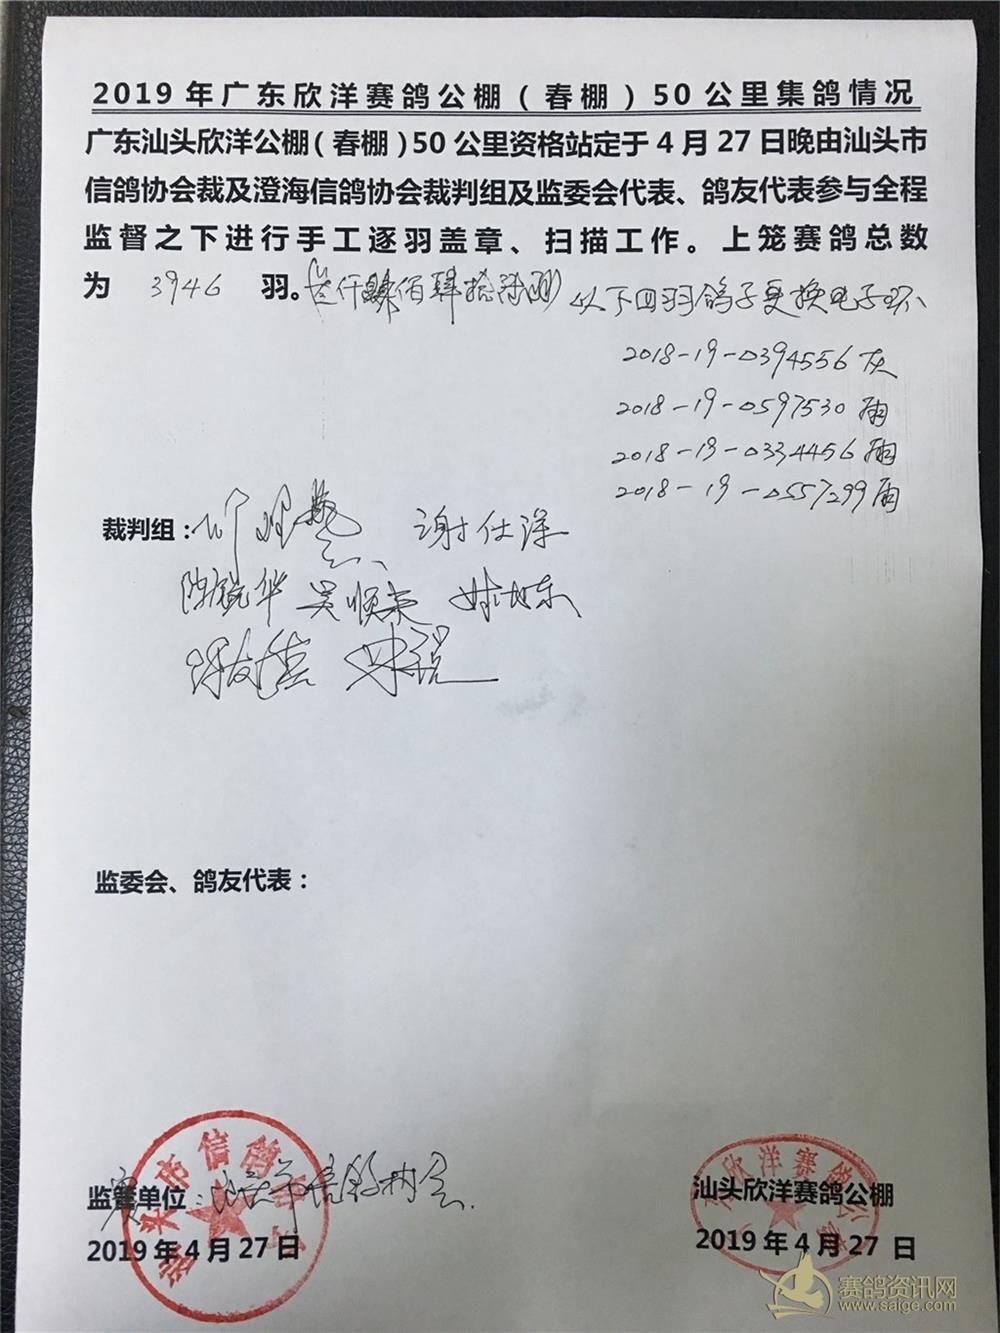 2019年广东欣洋赛鸽公棚（春棚）50公里集鸽情况
广东汕头欣洋公棚（春棚）50公里资格站定于4月27日晚由汕头市
信鸽协会裁及澄海信鸽协会裁判组及监委会代表、鸽友代表参与全程
监督之下进行手工逐羽盖章、扫描工作。上笼赛鸽总数
为 3946 羽。 以下四羽鸽子更换电子环
2018-19-0394556 灰
2018-19-0597530 雨
2018-19-0334456 雨
2018-19-0557299 雨
裁判组： 谢仕
陈 华 吴顺
监委会、鸽友代表：
市信鸽
监管单位： 市信鸽协会
2019年4月27日
欣洋赛鸽公
汕头欣洋赛鸽公棚
2019年4月27日
赛鸽资讯网
www.saige.com